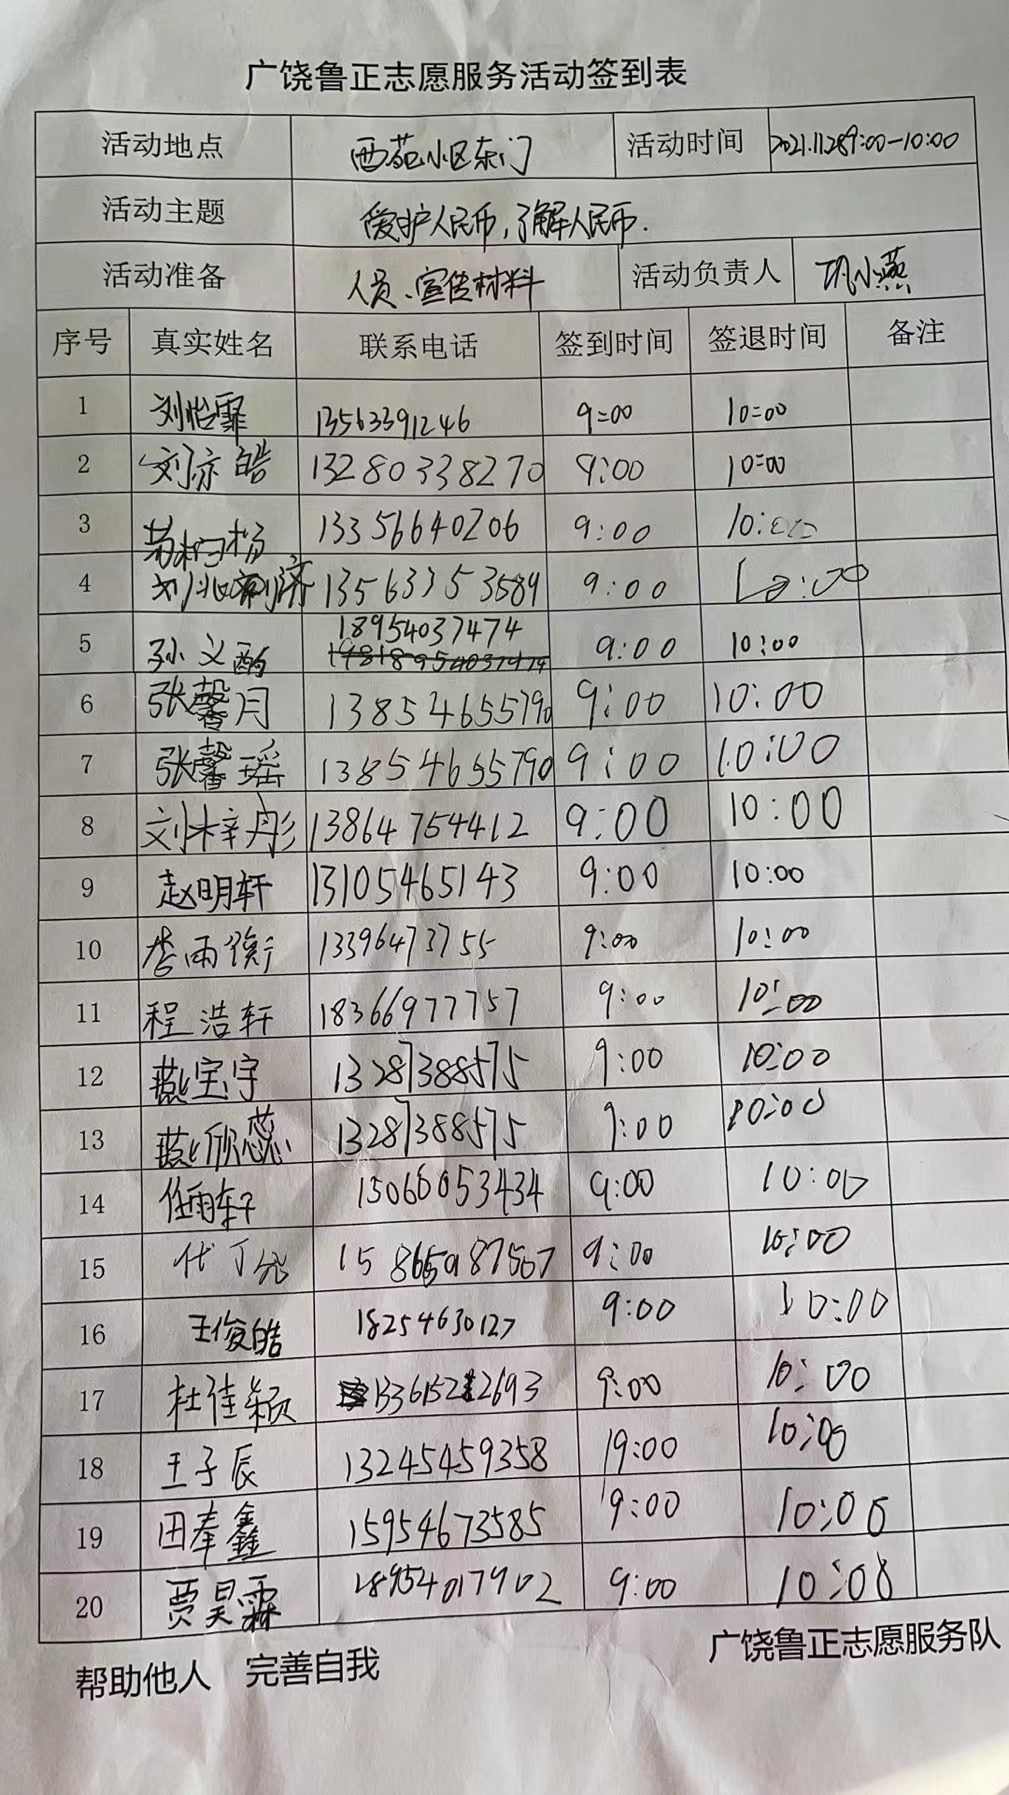 广饶鲁正志愿服务活动签到表
活动地点 西苑小区东门 活动时间 2021.11.28 9:00-10:00
活动主题 爱护人民币,了解人民币.
活动准备 人员、宣传材料 活动负责人 小燕
序号 真实姓名 联系电话 签到时间 签退时间 备注
1 刘怡霏 13563391246 9:00 10:00
2 刘亦皓 13280338270 9:00 10:00
3 13356640206 9:00 10:00
4 13563353589 9:00 10:00
5 孙义酌 18954037474 9:00 10:00
6 张馨月 13854655790 9:00 10:00
7 张馨瑶 13854655790 9:00 10:00
8 刘梓彤 13864754412 9:00 10:00
9 赵明轩 13105465143 9:00 10:00
10 李雨衡 13396473755 9:00 10:00
11 程浩轩 18366977757 9:00 10:00
12 燕宝宇 13287388575 9:00 10:00
13 燕欣蕊 13287388575 9:00 10:00
14 任雨轩 15066053434 9:00 10:00
15 代丁 9:00 10:00
16 王俊皓 18254630127 9:00 10:00
17 杜佳颖 9:00 10:00
18 王子辰 13245459358 19:00 10:00
19 田奉鑫 15954673585 9:00 10:00
20 贾昊霖 18954017902 9:00 10:00
帮助他人 完善自我 广饶鲁正志愿服务队